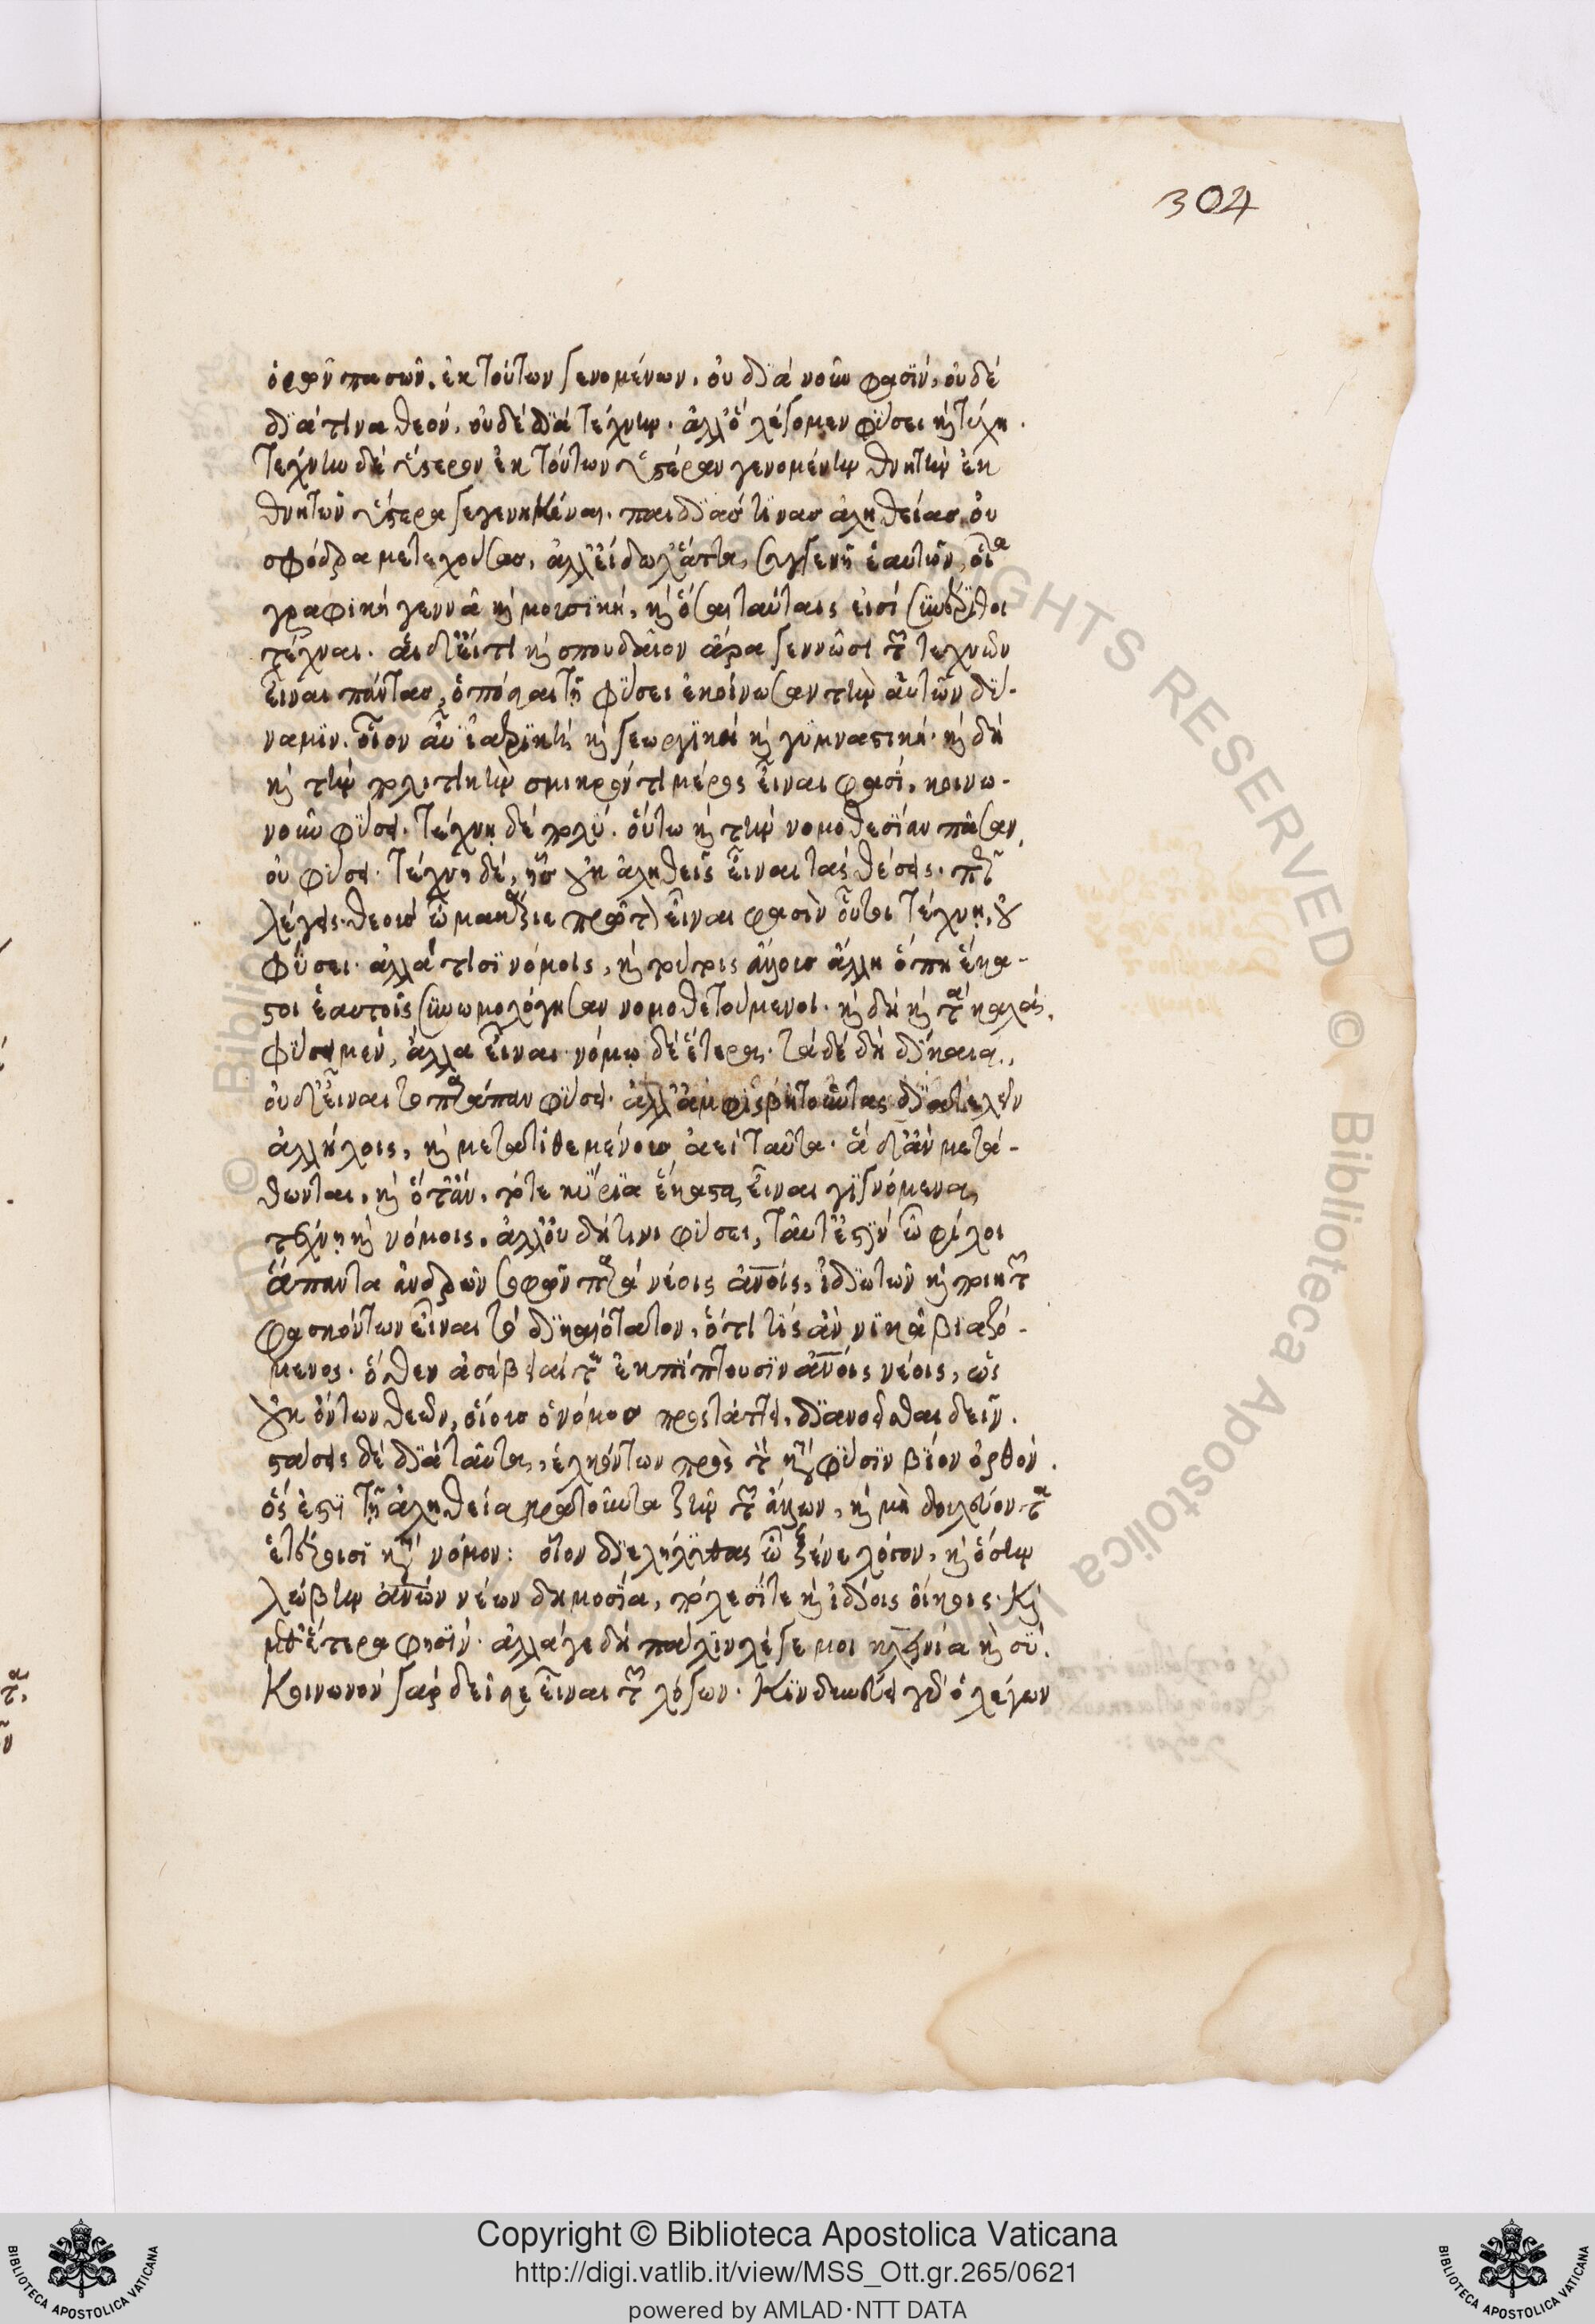 304
ὁρῶν πασῶν, ἐκ τούτων γενομένων, οὐ διὰ νοῦν φασὶν, οὐδέ
διά τινα θεόν, οὐδὲ διὰ τέχνην. ἀλλ' ὃ λέγομεν φύσει καὶ τύχη.
τέχνην δὲ ὕστερον ἐκ τούτων ὑστέραν γενομένην θνητὴν ἐκ
θνητῶν ὕστερα γεγενηκέναι. παιδιάς τινας ἀληθείας οὐ
σφόδρα μετεχούσας, ἀλλ' εἴδωλ' ἄττα, συγγενῆ ἑαυτῶν, οἷα
γραφικὴ γεννᾶ καὶ μουσική, καὶ ὅσαι ταύταις εἰσὶ συνέριθοι
τέχναι. αἳ δ' εἴ τι καὶ σπουδαῖον ἄρα γεννῶσι τῶν τεχνῶν
εἶναι πάντας, ὁπόσαι τῇ φύσει ἐκοίνωσαν τὴν αὑτῶν δύ-
ναμιν. οἷον αὖ ἰατρικὴ καὶ γεωργικὴ καὶ γυμναστική. καὶ δὴ
καὶ τὴν πολιτικὴν σμικρόν τι μέρος εἶναι φασί, κοινω-
νοῦν φύσει. τέχνῃ δὲ πολύ. οὕτω καὶ τὴν νομοθεσίαν πᾶσαν,
οὐ φύσει. τέχνῃ δέ, ἧς οὐκ ἀληθεῖς εἶναι τὰς θέσεις. πῶς
λέγεις. θεοὺς ὦ μακάριε πρῶτον εἶναι φασὶν οὗτοι τέχνῃ, οὐ
φύσει. ἀλλά τισι νόμοις, καὶ τούτοις ἄλλοις ἄλλη ὅπη ἕκα-
στοι ἑαυτοῖς συνωμολόγησαν νομοθετούμενοι. καὶ δὴ καὶ τὰ καλὰ,
φύσει μὲν, ἄλλα εἶναι. νόμῳ δὲ ἕτερα. τὰ δὲ δὴ δίκαια,
οὐδ' εἶναι τὸ παράπαν φύσει. ἀλλ' ἀμφισβητοῦντας διατελεῖν
ἀλλήλοις, καὶ μετατιθεμένους ἀεὶ ταῦτα. ἃ δ' ἂν μετά-
θωνται, καὶ ὅταν, τότε κύρια ἕκαστα εἶναι γιγνόμενα
τέχνῃ καὶ νόμοις. ἀλλ' οὐ δή τινι φύσει, ταῦτ' ἐστὶν ὦ φίλοι
ἅπαντα ἀνδρῶν σοφῶν παρὰ νέοις ἀνοις, ἰδιωτῶν καὶ ποιητῶν
φασκόντων εἶναι τὸ δικαιότατον, ὅτι τίς ἂν νικᾷ βιαζό-
μενος. ὅθεν ἀσέβειαί τε ἐμπίπτουσιν ἀνοις νέοις, ὡς
οὐκ ὄντων θεῶν, οἵους ὁ νόμος προστάττει, διανοεῖσθαι δεῖν.
στάσεις δὲ διὰ ταῦτα, ἑλκόντων πρὸς τὸν κατὰ φύσιν βίον ὀρθόν.
ὅς ἐστὶ τῇ ἀληθείᾳ κρατοῦντα ζῆν τῶν ἄλλων, καὶ μὴ δουλεύοντα
ἑτέροισι κατὰ νόμον: οἷον διελήλυθας ὦ ξένε λόγον, καὶ ὅσην
λώβην ἀνων νέων δημοσίᾳ, πόλεσί τε καὶ ἰδίοις οἴκοις. Καὶ
μεθ' ἕτερα φησίν. ἀλλά γε δὴ πάλιν λέγε μοι κλεινία καὶ σύ.
Κοινωνὸν γὰρ δεῖ σε εἶναι τῶν λόγων. Κινδυνεύει γὰρ ὁ λέγων